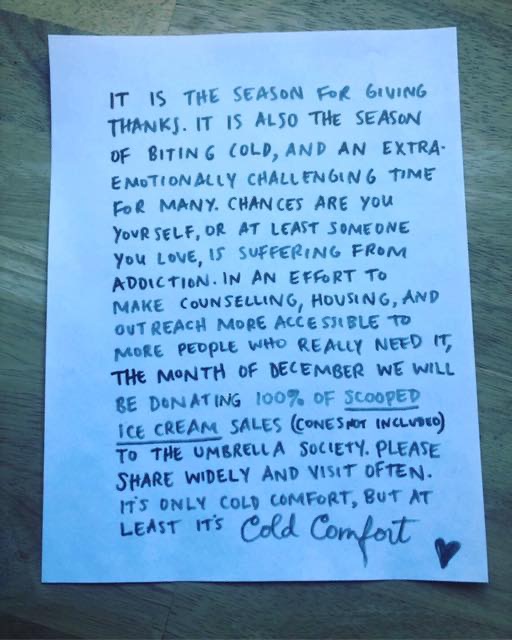 IT IS THE SEASON FOR GIVING
THANKS. IT IS ALSO THE SEASON
OF BITING COLD, AND AN EXTRA-
EMOTIONALLY CHALLENGING TIME
FOR MANY. CHANCES ARE YOU
YOURSELF, OR AT LEAST SOMEONE
YOU LOVE, IS SUFFERING FROM
ADDICTION. IN AN EFFORT TO
MAKE COUNSELLING, HOUSING, AND
OUTREACH MORE ACCESSIBLE TO
MORE PEOPLE WHO REALLY NEED IT,
THE MONTH OF DECEMBER WE WILL
BE DONATING 100% OF SCOOPED
ICE CREAM SALES (CONES NOT INCLUDED)
TO THE UMBRELLA SOCIETY. PLEASE
SHARE WIDELY AND VISIT OFTEN.
IT'S ONLY COLD COMFORT, BUT AT
LEAST IT'S Cold Comfort